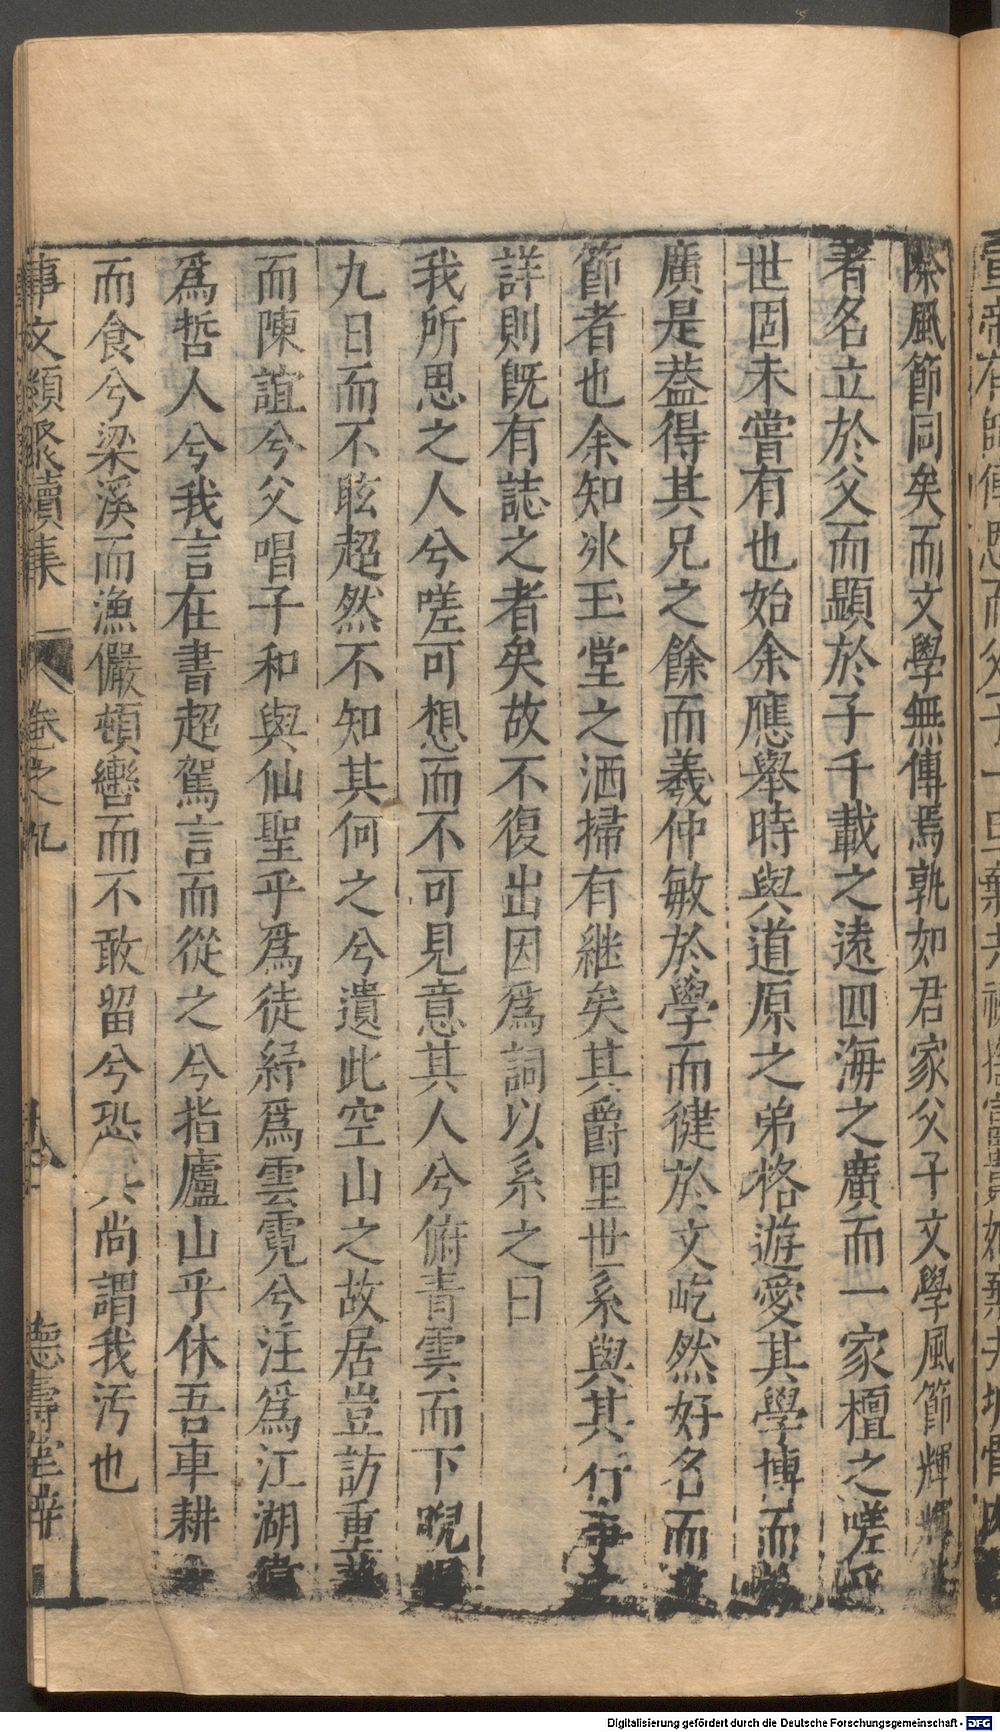 際風節同矣而文學無傳焉孰如君家父子文學風節輝
著名立於父而顯於子千載之遠四海之廣而一家檀之嗟乎
世固未嘗有也始余應舉時與道原之弟格遊愛其學博而
廣是葢得其兄之餘而羲仲敏於學而徤於文屹然好名而
節者也余知氷玉堂之洒掃有継矣其爵里世系與其行事
詳則旣有誌之者矣故不復出因爲詞以系之曰
我所思之人兮嗟可想而不可見意其人兮俯青雲而下睨
九日而不眩超然不知其何之兮遺此空山之故居豈訪重
而陳誼兮父唱子和與仙聖乎爲徒紛爲雲霓兮注爲江湖
爲哲人兮我言在書超駕言而從之兮指廬山乎休吾車耕
而食兮梁溪而漁儼頓轡而不敢留兮恐尚謂我汚也
事文類聚續集 卷之九 德壽堂梓
Digitalisierung gefördert durch die Deutsche Forschungsgemeinschaft - DFG